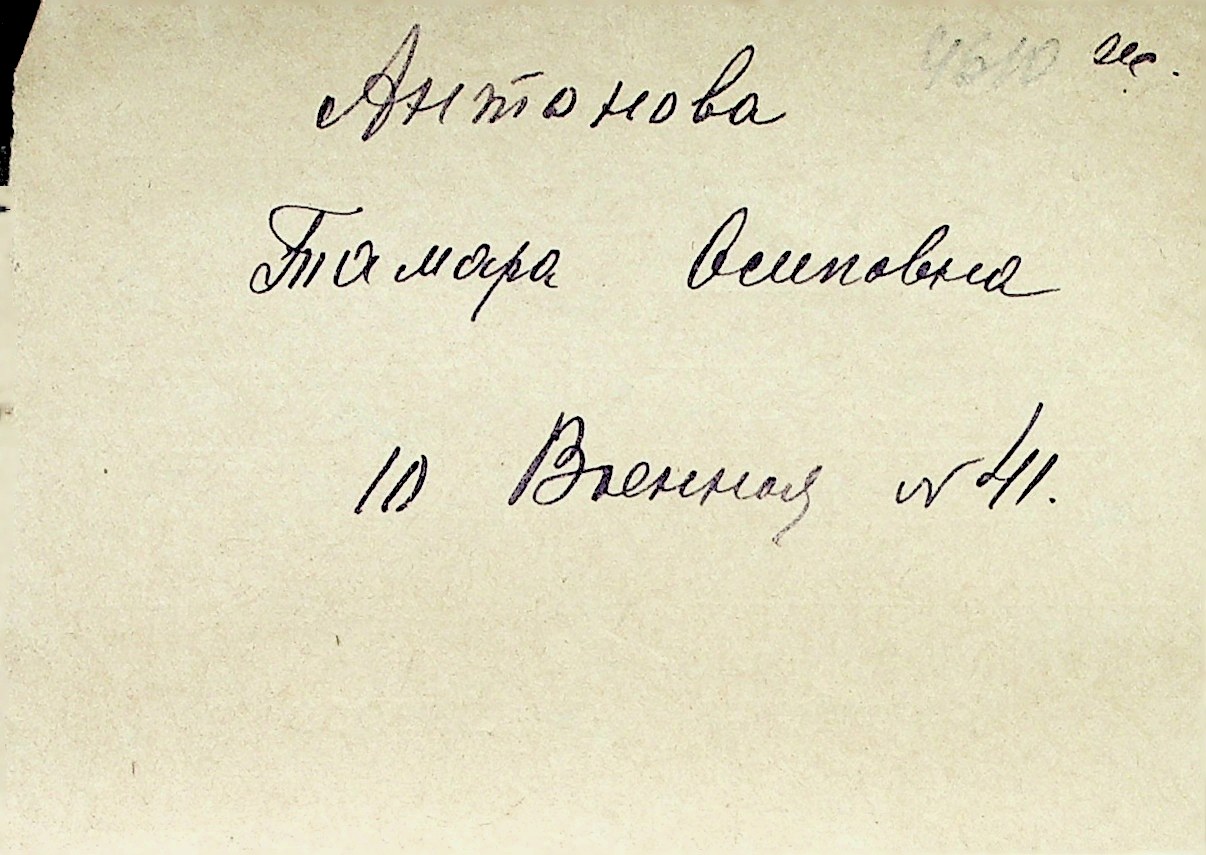 ж.
Антонова
Тамара Осиповна
10 Военная № 41.